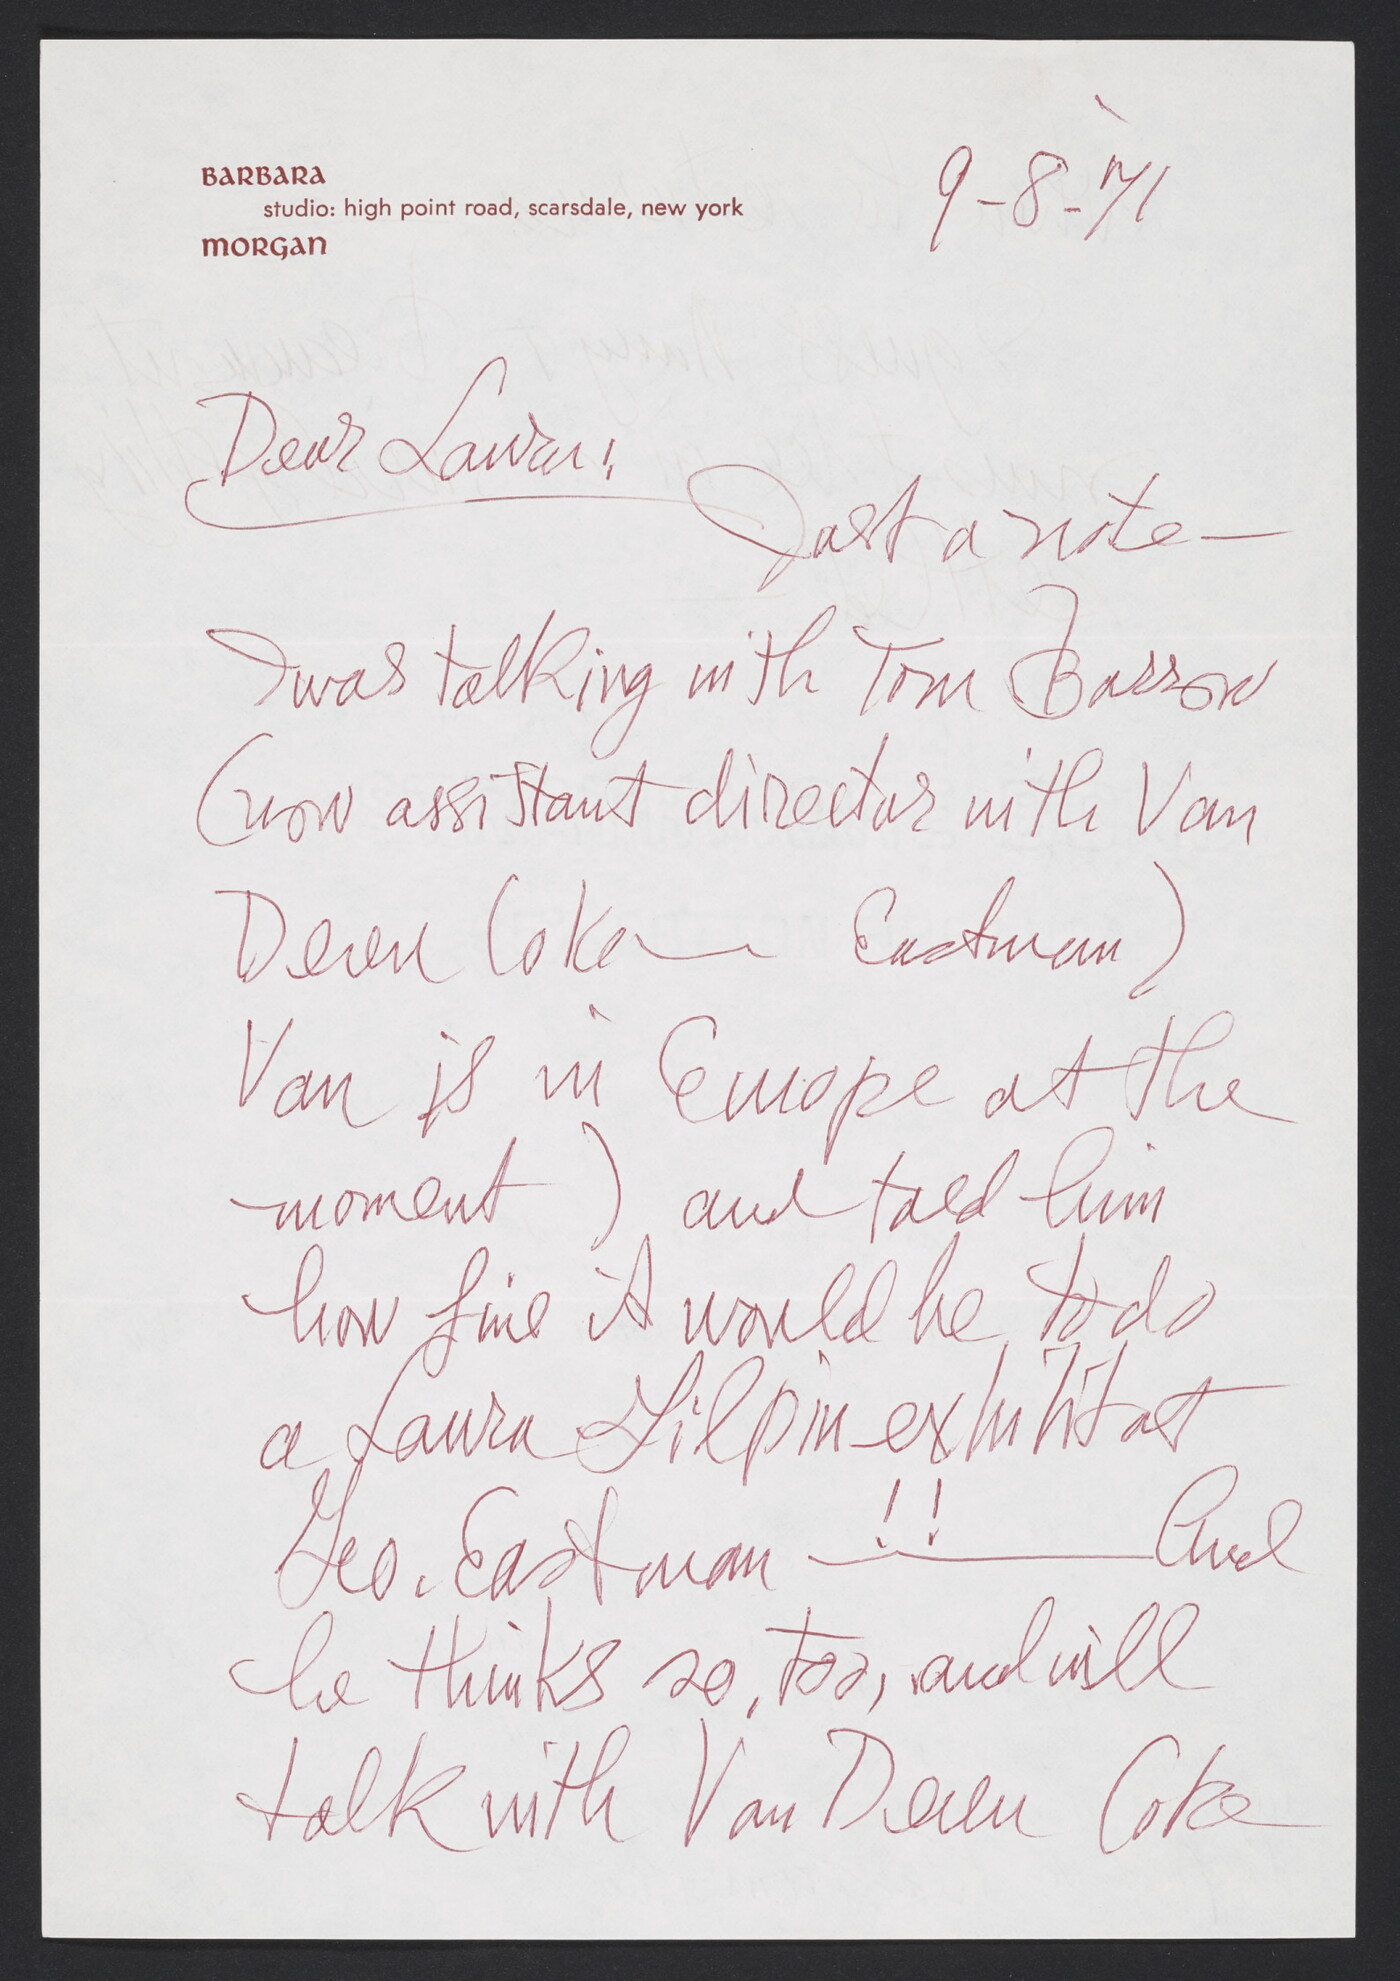 BARBARA
studio: high point road, scarsdale, new york
MORGAN
9-8-'71
Dear Laura:
Just a note —
I was talking with Tom Barrow
(now assistant director with Van
Deren Coke — Eastman)
Van is in Europe at the
moment) and told him
how fine it would be to do
a Laura Gilpin exhibit at
Geo. Eastman — !! — And
he thinks so, too, and will
talk with Van Deren Coke